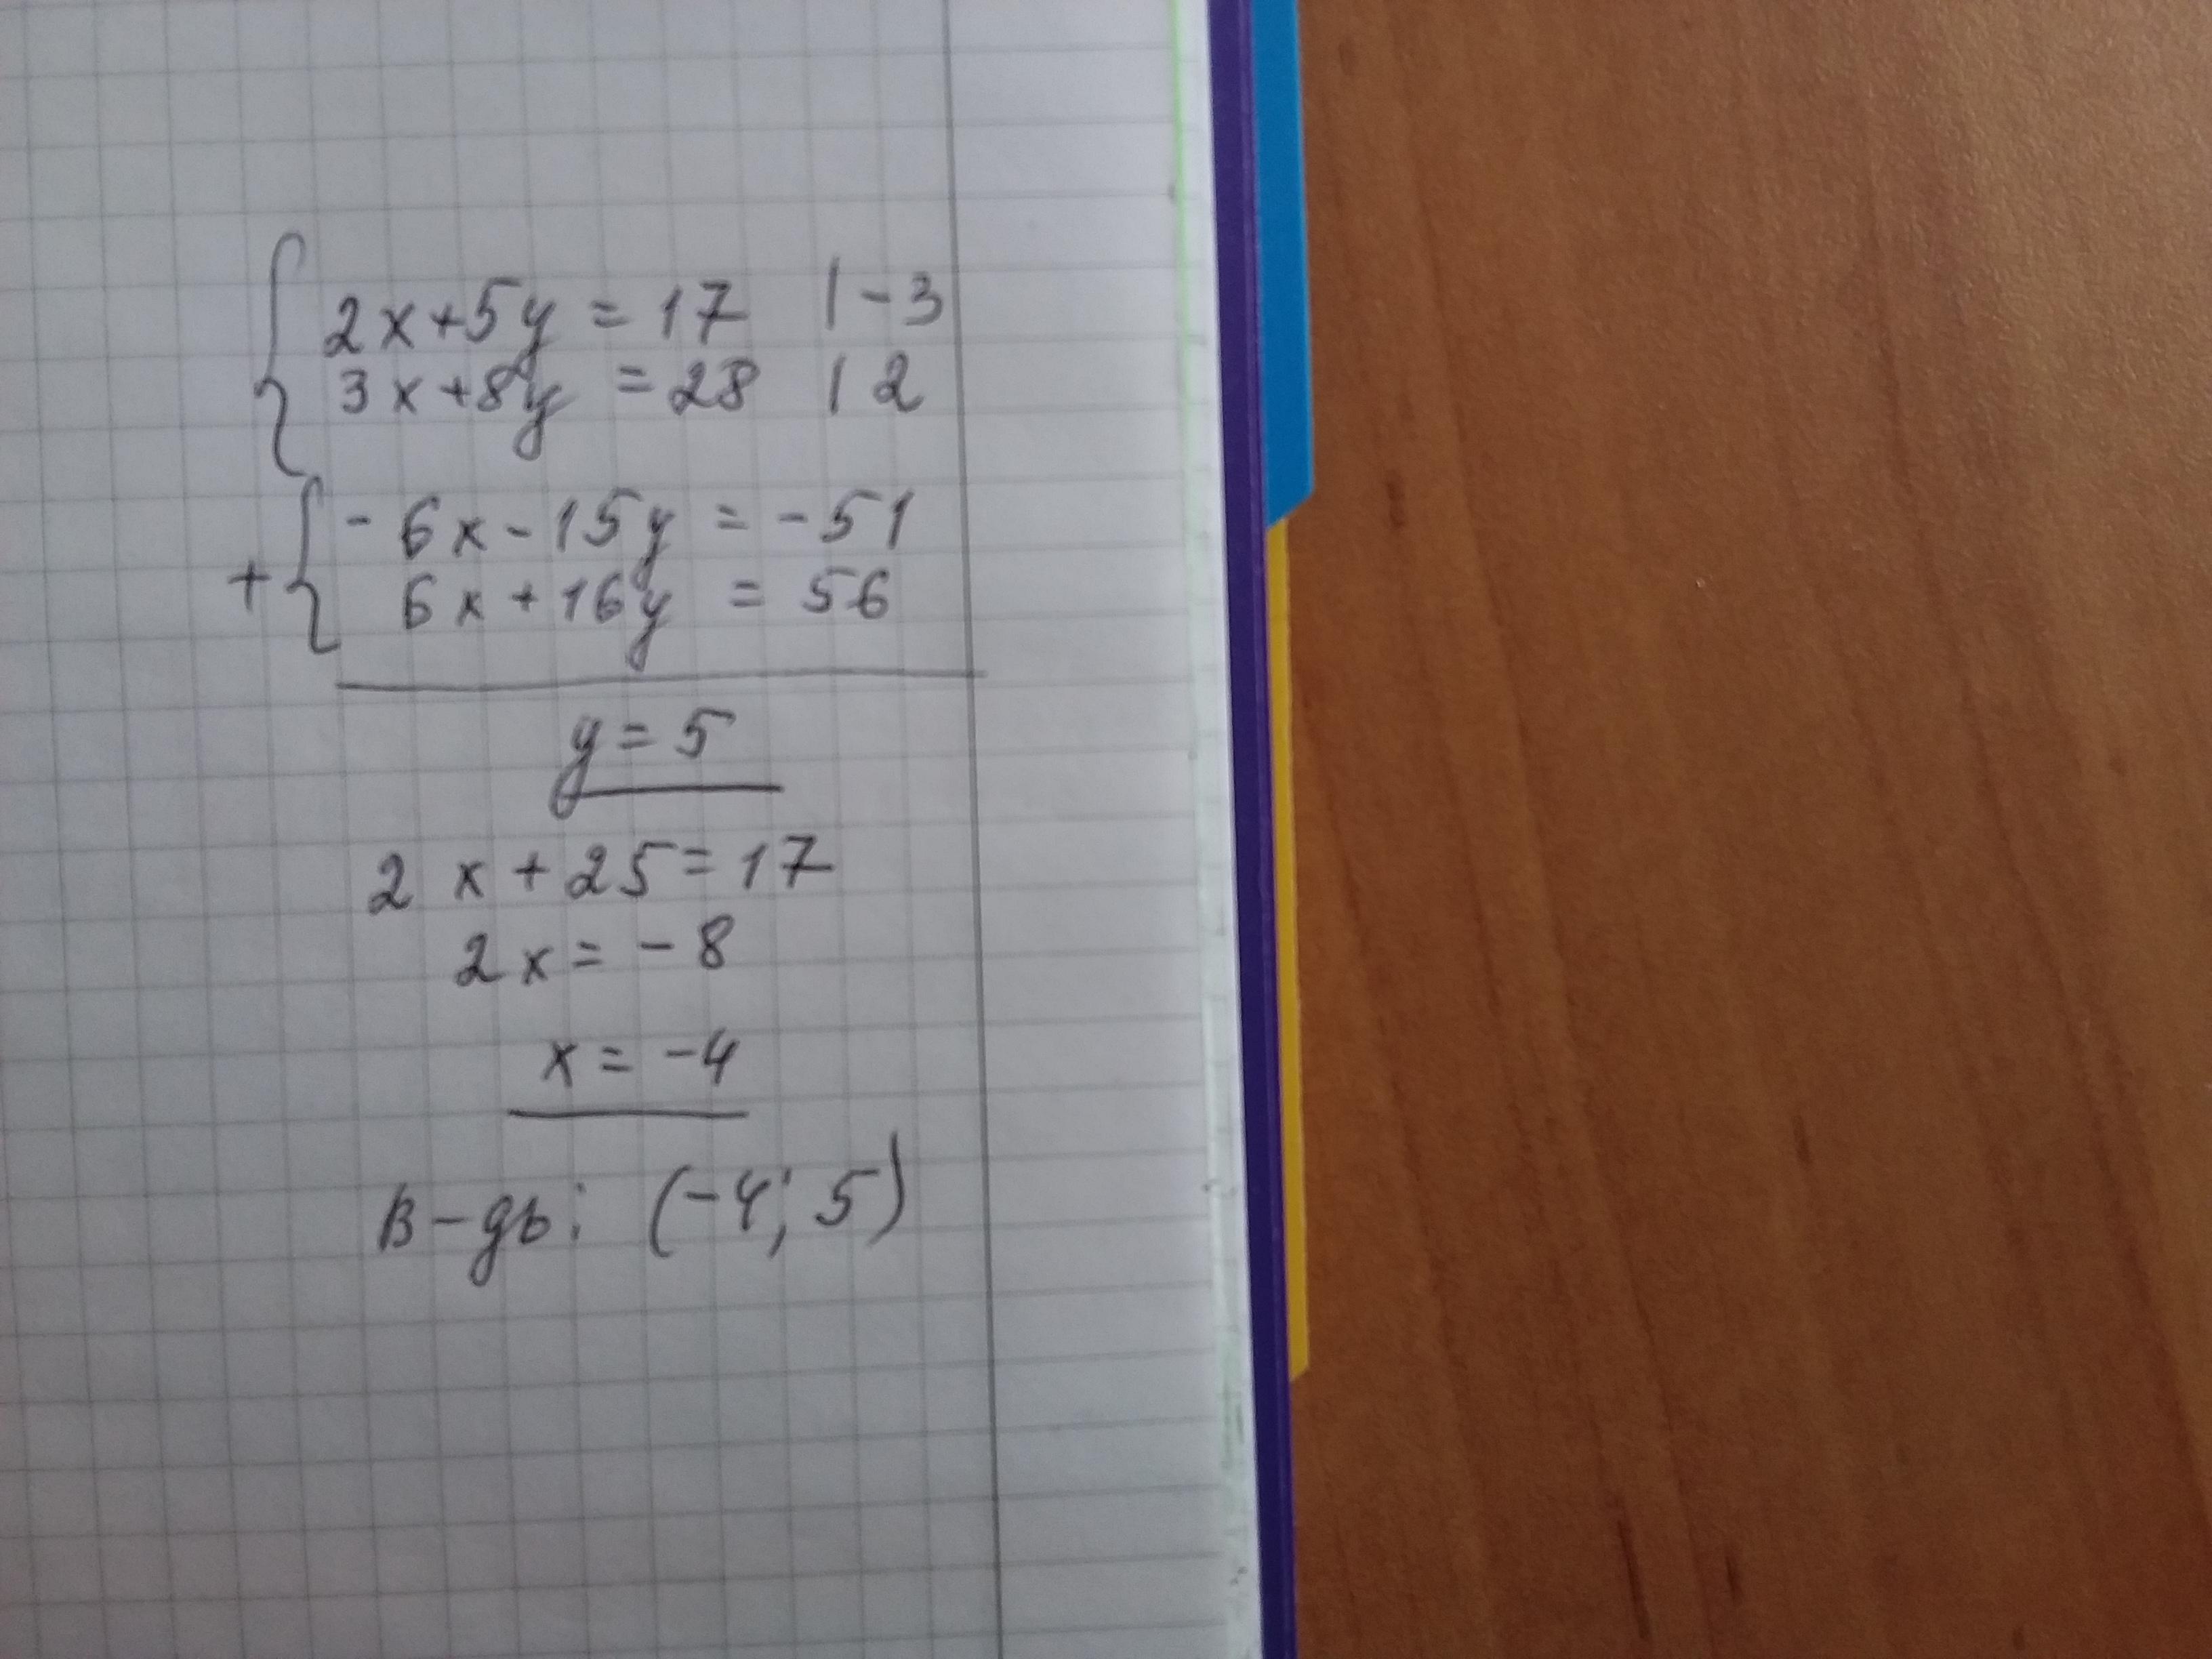 2x+5y = 17 | -3
3x+8y = 28 | 2
- 6x - 15y = -51
+ 6x + 16y = 56
y = 5
2x + 25 = 17
2x = - 8
x = -4
В-дь: (-4; 5)